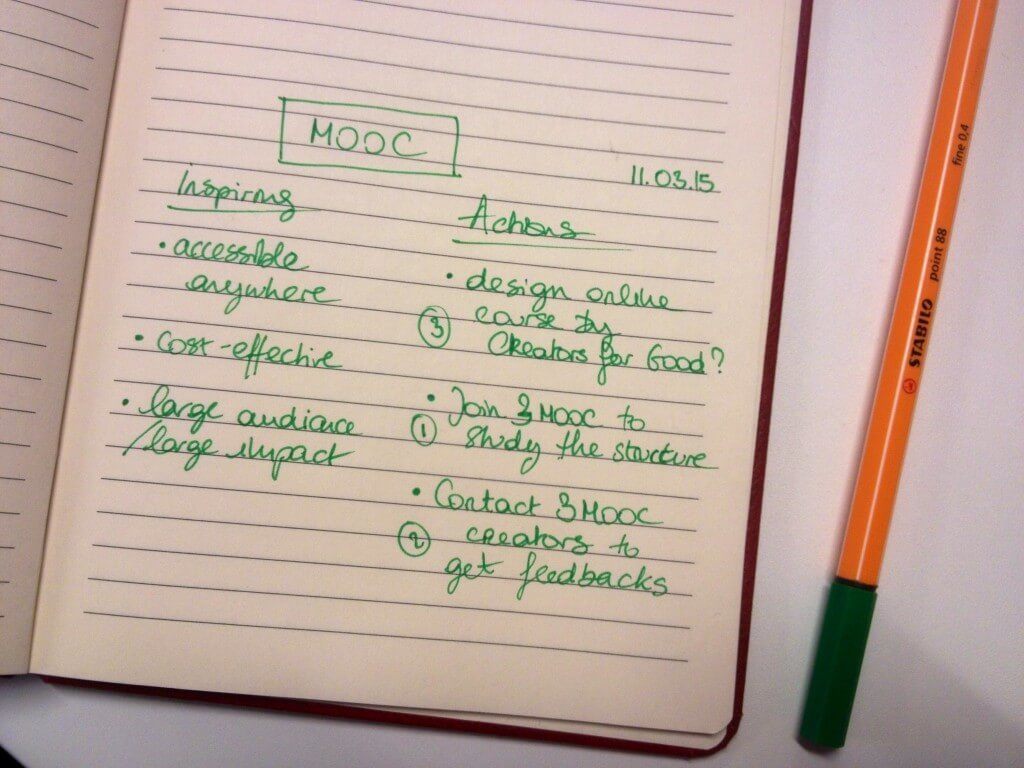 MOOC
11.03.15
Inspiring
• accessible
anywhere
• cost-effective
• large audience
/large impact
Actions
• design online
③ course by
Creators for Good?
• Join 3 MOOC to
① study the structure
• Contact 3 MOOC
② creators to
get feedbacks
STABILO point 88 fine 0,4